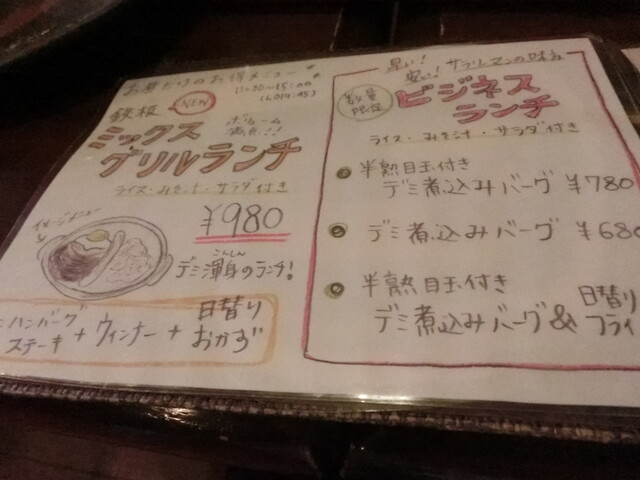 お昼だけのお得メニュー
11:30〜15:00
(LO14:45)
鉄板
NEW
ミックス
グリルランチ
ボリューム
満点!!
ライス・みそ汁・サラダ付き
¥980
イメージ
デミ渾身のランチ!
こんしん
ハンバーグ
ステーキ + ウィンナー + 日替り
おかず
早い!
安い! サラリーマンの味方
数量
限定
ビジネス
ランチ
ライス・みそ汁・サラダ付き
半熟目玉付き
デミ煮込みバーグ ¥780
デミ煮込みバーグ ¥680
半熟目玉付き
デミ煮込みバーグ & 日替り
フライ